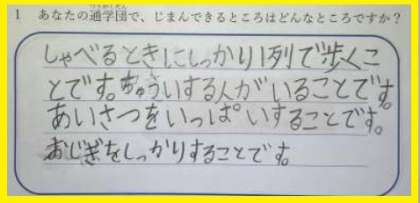 1 あなたの通学団で、じまんできるところはどんなところですか？
しゃべるときにしっかり1列で歩くこ
とです。ちゅういする人がいることです。
あいさつをいっぱいすることです。
おじぎをしっかりすることです。